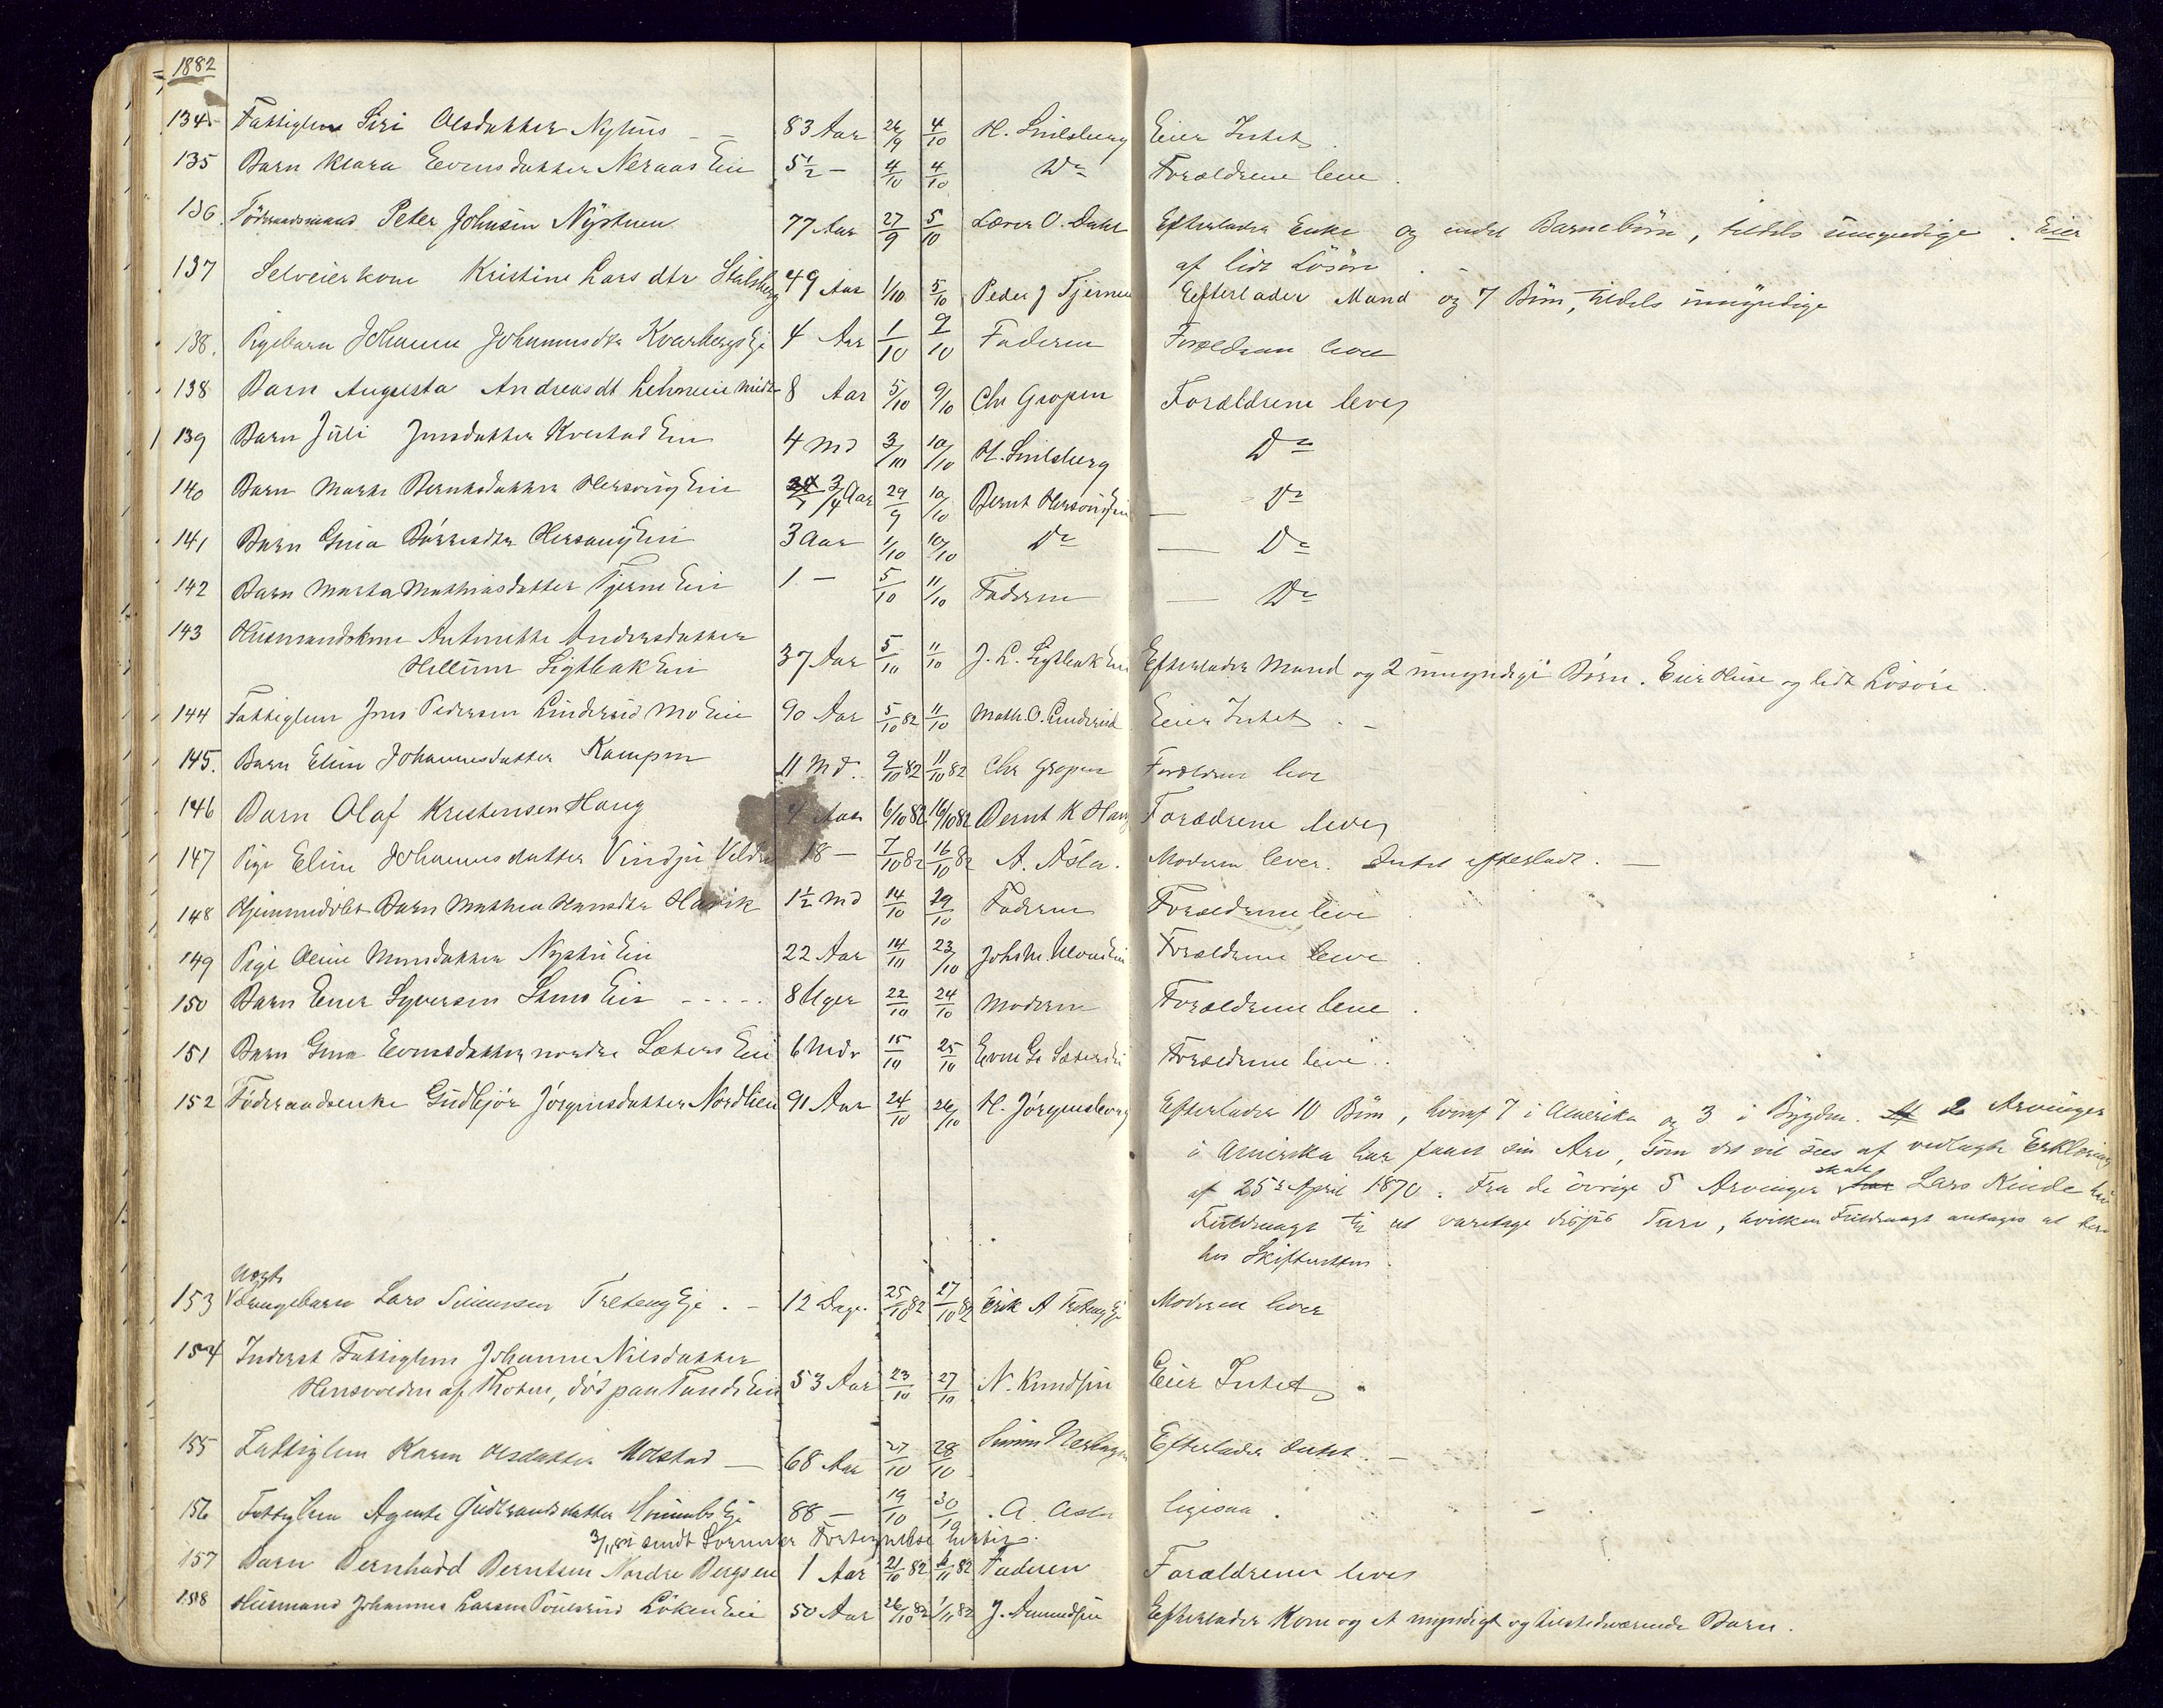 1882
134 Fattiglem Siri Olsdatter Nyhus 83 Aar 26/9 4/10 H. Smilsberg Eier Intet.
135 Barn Klara Evensdatter Neraas Eie 5½ – 4/10 4/10 Do Forældrene leve.
136. Föderaadsmand Peter Johnsen Nystuen 77 Aar 27/9 5/10 Lærer O. Dahl Efterlader Enke og endel Barnebörn, tildels umyndige. Eier
af lidt Lösöre.
137 Selveierkone Kristine Larsdtr Stalsberg 49 Aar 1/10 5/10 Peder J Tjerne Efterlader Mand og 7 Börn, tildels umyndige
138. Pigebarn Johanne Johannesdtr Kvarbergs Eje 4 Aar 1/10 9/10 Faderen Forældrene lever
138 Barn Augusta Andreasdt 8 Aar 5/10 9/10 Chr Gropen Forældrene lever
139 Barn Juli Jensdatter Kvestad Eie 4 Md 3/10 10/10 H. Smilsberg Do
140 Barn Marte Berntsdatter Hersoug Eie 3/4 Aar 29/9 10/10 Bernt Hersougeie – Do
141 Barn Gina Börresdtr Hersoug Eie 3 Aar 1/10 10/10 Do – Do
142 Barn Marta Mathiasdatter Tjerne Eie 1 – 5/10 11/10 Faderen – Do
143 Husmandskone Antonette Andersdatter
Sigtbak Eie 37 Aar 5/10 11/10 J. L. Sigtbak Eie Efterlader Mand og 2 umyndige Börn. Eier Huse og lidt Lösöre.
144 Fattiglem Jens Pedersen Linderud Mo Eie 90 Aar 5/10 82 11/10 Math. O. Linderud Eier Intet. –
145. Barn Eline Johannesdatter Kampen 11 Md. 9/10 82 11/10 82 Chr Gropen Forældrene lever
146 Barn Olaf Kristensen Haug 4 Aar 6/10 82 16/10 82 Bernt K Haug Forædrene lever
147 Pige Eline Johannesdatter Veldre 18 – 7/10 82 16/10 82 A. Asla. Moderen lever. Intet efterladt. –
148 Hjemmedöbt Barn Mathea Hansdtr Hasvik 1½ Md 14/10 29/10 Faderen Forældrene leve
149 Pige Oline Monsdatter Nyshu Eie 22 Aar 14/10 23/10 Forældrene leve.
150 Barn Einer Syversen Stens Eie 8 Uger 22/10 24/10 Moderen Forældrene leve.
151 Barn Gina Evensdatter nordre Sæters Eie 6 Mdr 15/10 25/10 Even G. Sætereie Forældrene leve.
152 Föderaadsenke Gudbjör Jörgensdatter Nordlien 91 Aar 24/10 26/10 H. Jörgensberg Efterlader 10 Börn, hvoraf 7 i Amerika og 3 i Bygden. Af 2 Arvinger
i Amerika har faaet sin Arv, som det vil sees af vedlagte Erklæring
af 25de April 1870. Fra de övrige 5 Arvinger har skal Lars Kinde have
Fuldmagt til at varetage disses Tarv, hvilken Fuldmagt antages at bero
hos Skifteretten.
153 Uægte
Drengebarn Lars Simensen Treteng Eje. – 12 Dage. 25/10 82 27/10 82 Erik A Treteng Eje Moderen lever
154 Inderst Fattiglem Johanne Nilsdatter
Hensvolden af Thoten, död paa Tande Eie 53 Aar 23/10 27/10 N. Knudsen Eier Intet.
155 Fattiglem Karen Olsdatter Molstad – 68 Aar 27/10 28/10 Simen Nerhagen Efterlader Intet. –
156 Fattiglem Agnete Gudbrandsdatter Eje 88 – 19/10 30/10 A. Asla ligesaa.
3/11 82 sendt Sorenskriver Fortegnelse hertil.
157 Barn Bernhard Berntsen Nordre Bergseie 1 Aar 21/10 82 6/11 82 Faderen Forældrene lever
158 Husmand Johannes Larsen Löken Eie 50 Aar 26/10 82 1/11 82 J. Amundsen Efterlader Kone og et myndigt og tilstedeværende Barn.